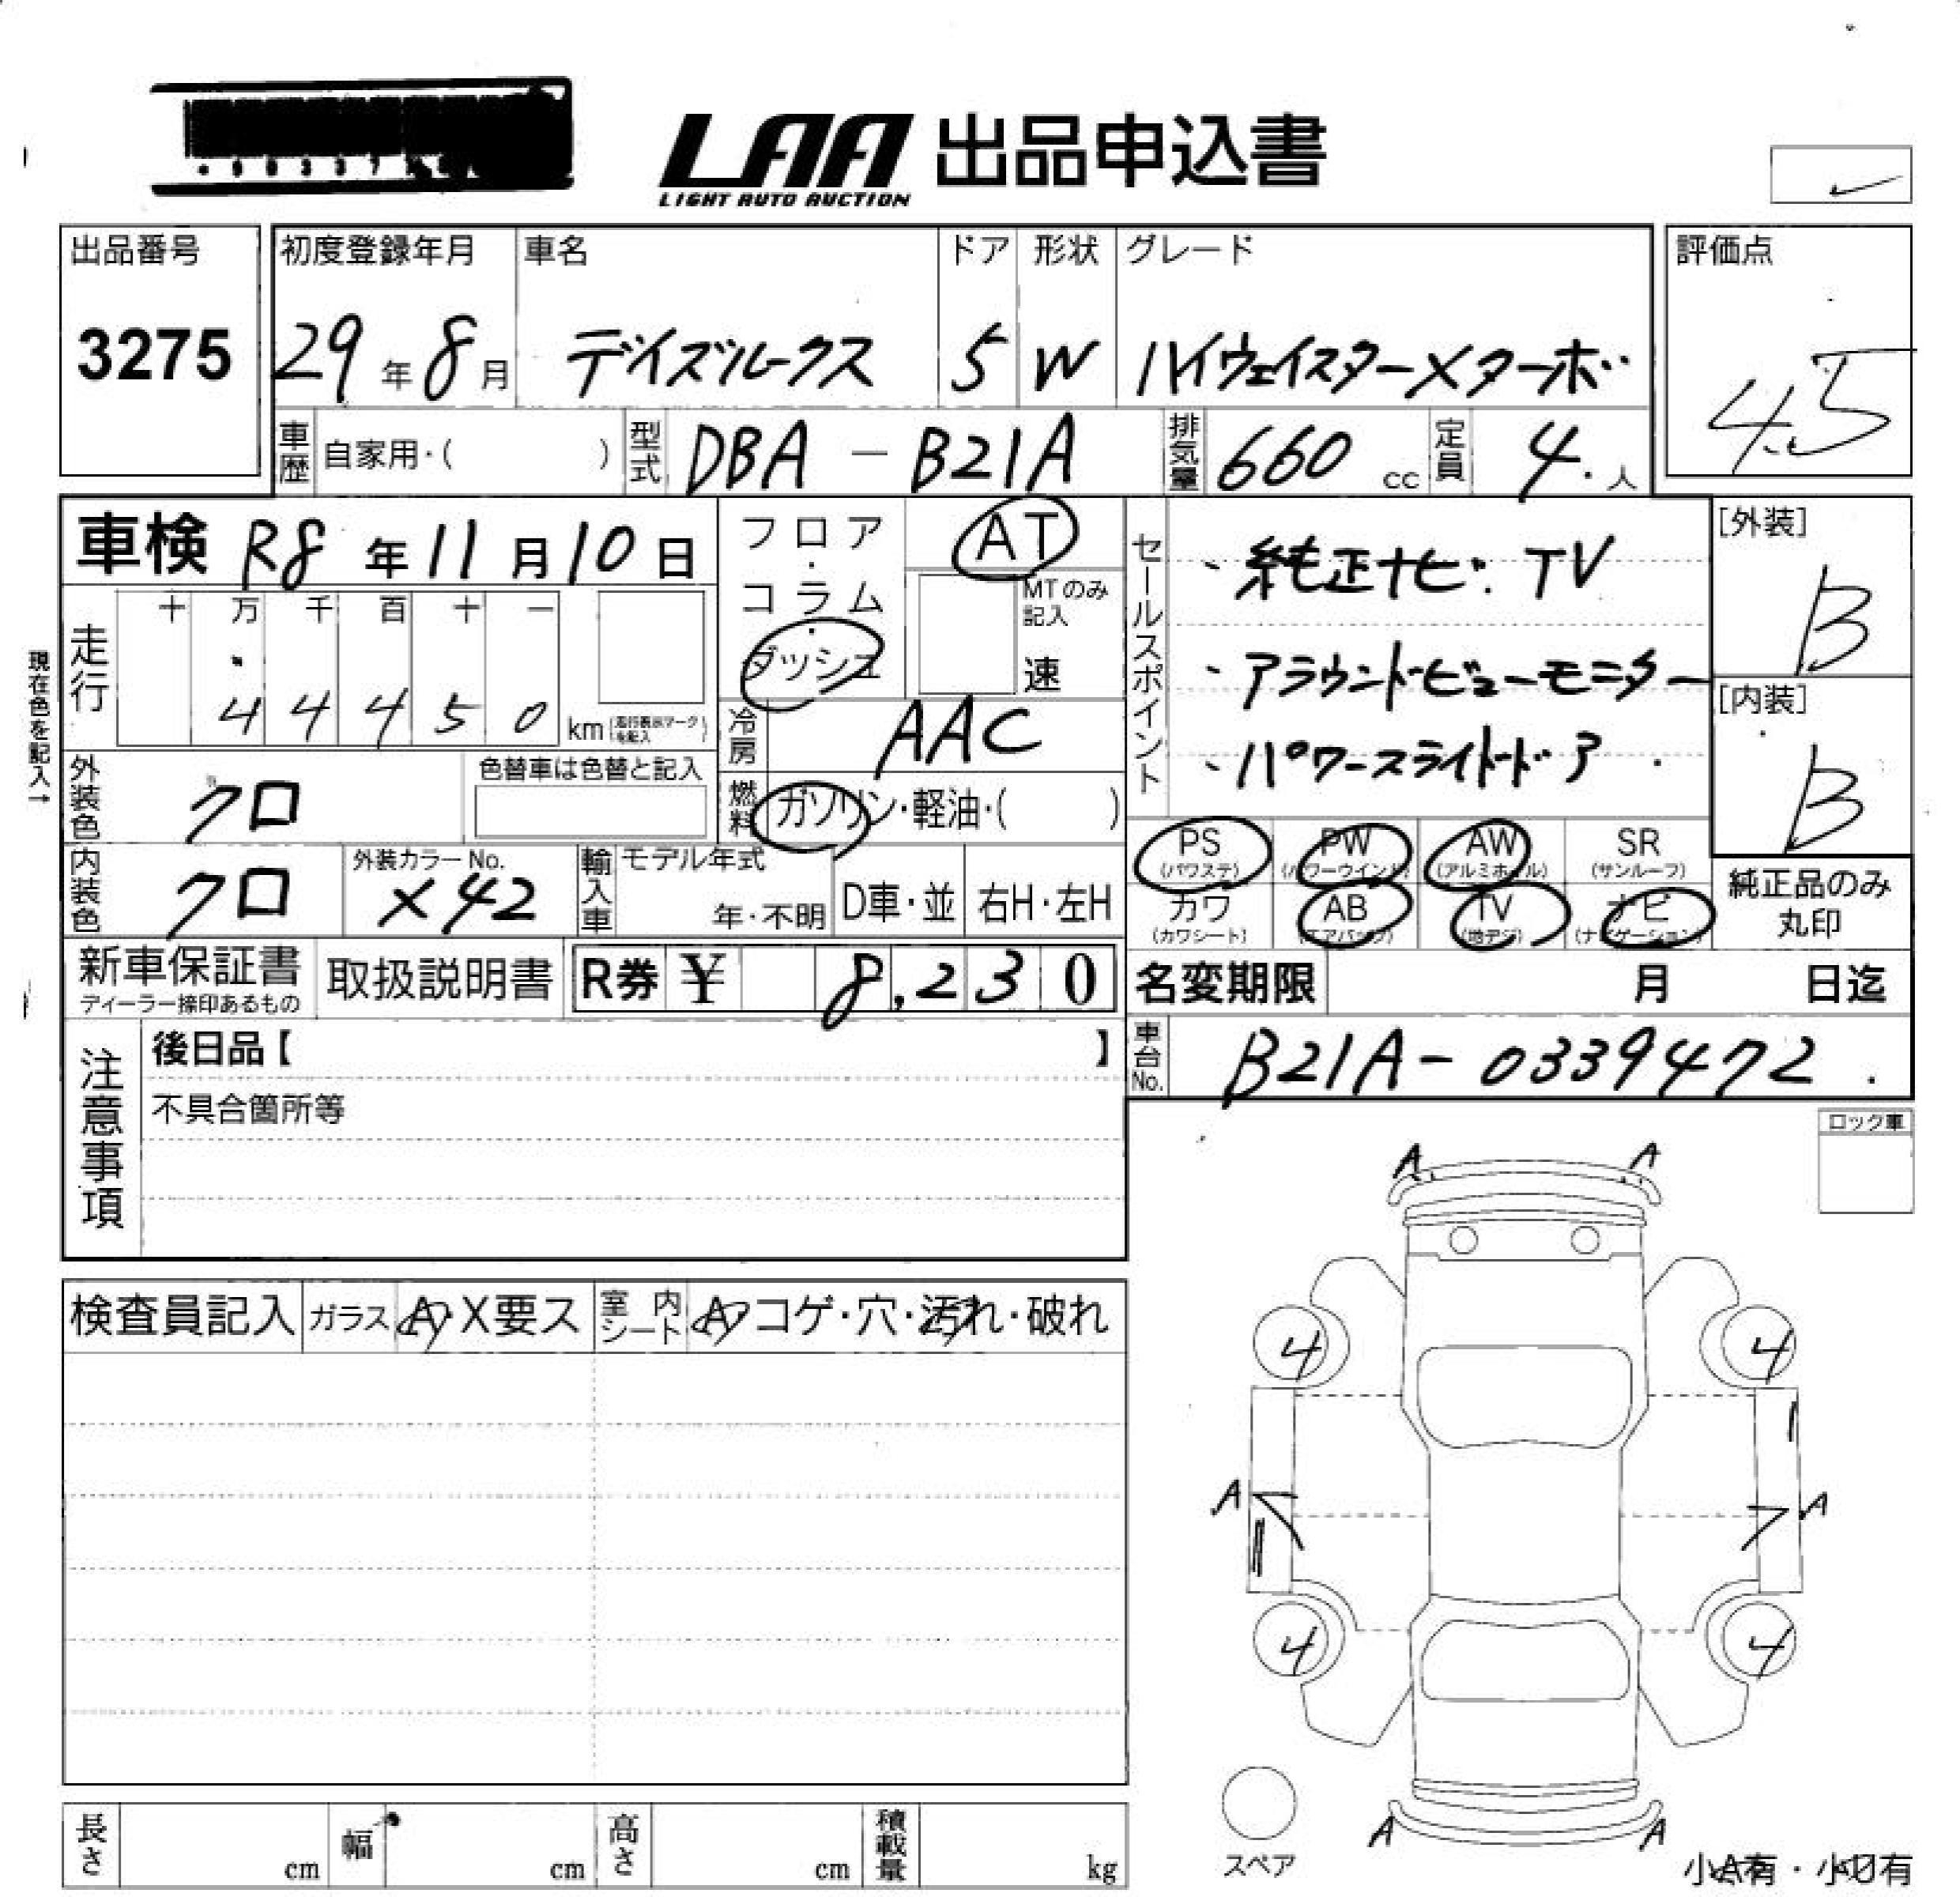 LAA 出品申込書
LIGHT AUTO AUCTION
出品番号
3275
初度登録年月 車名 ドア 形状 グレード
29年8月 デイズルークス 5 W ハイウェイスターXターボ
評価点
4.5
車歴 自家用・( ) 型式 DBA-B21A 排気量 660 cc 定員 4. 人
車検 R8年11月10日
フロア・コラム・ダッシュ
AT
MTのみ記入
速
走行 十 万 千 百 十 一
4 4 4 5 0 km (走行表示マークを記入)
現在色を記入→
冷房 AAC
外装色 クロ
色替車は色替と記入
燃料 ガソリン・軽油・( )
内装色 クロ
外装カラーNo.
X42
輸入車 モデル年式
年・不明 D車・並 右H・左H
新車保証書
ディーラー捺印あるもの
取扱説明書
R券 ¥ 8,230
セールスポイント
・純正ナビ. TV
・アラウンドビューモニター
・パワースライドドア
[外装]
B
[内装]
B
PS (パワステ) PW (パワーウインド) AW (アルミホイル) SR (サンルーフ)
カワ (カワシート) AB (エアバッグ) TV (地デジ) ナビ (ナビゲーション)
純正品のみ
丸印
名変期限 月 日迄
車台No. B21A-0339472
注意事項
後日品【 】
不具合箇所等
ロック車
検査員記入 ガラス A・X要ス 室内シート A・コゲ・穴・汚れ・破れ
A A
4 4
A A
4 4
A A
スペア
小A有・小U有
長さ cm 幅 cm 高さ cm 積載量 kg